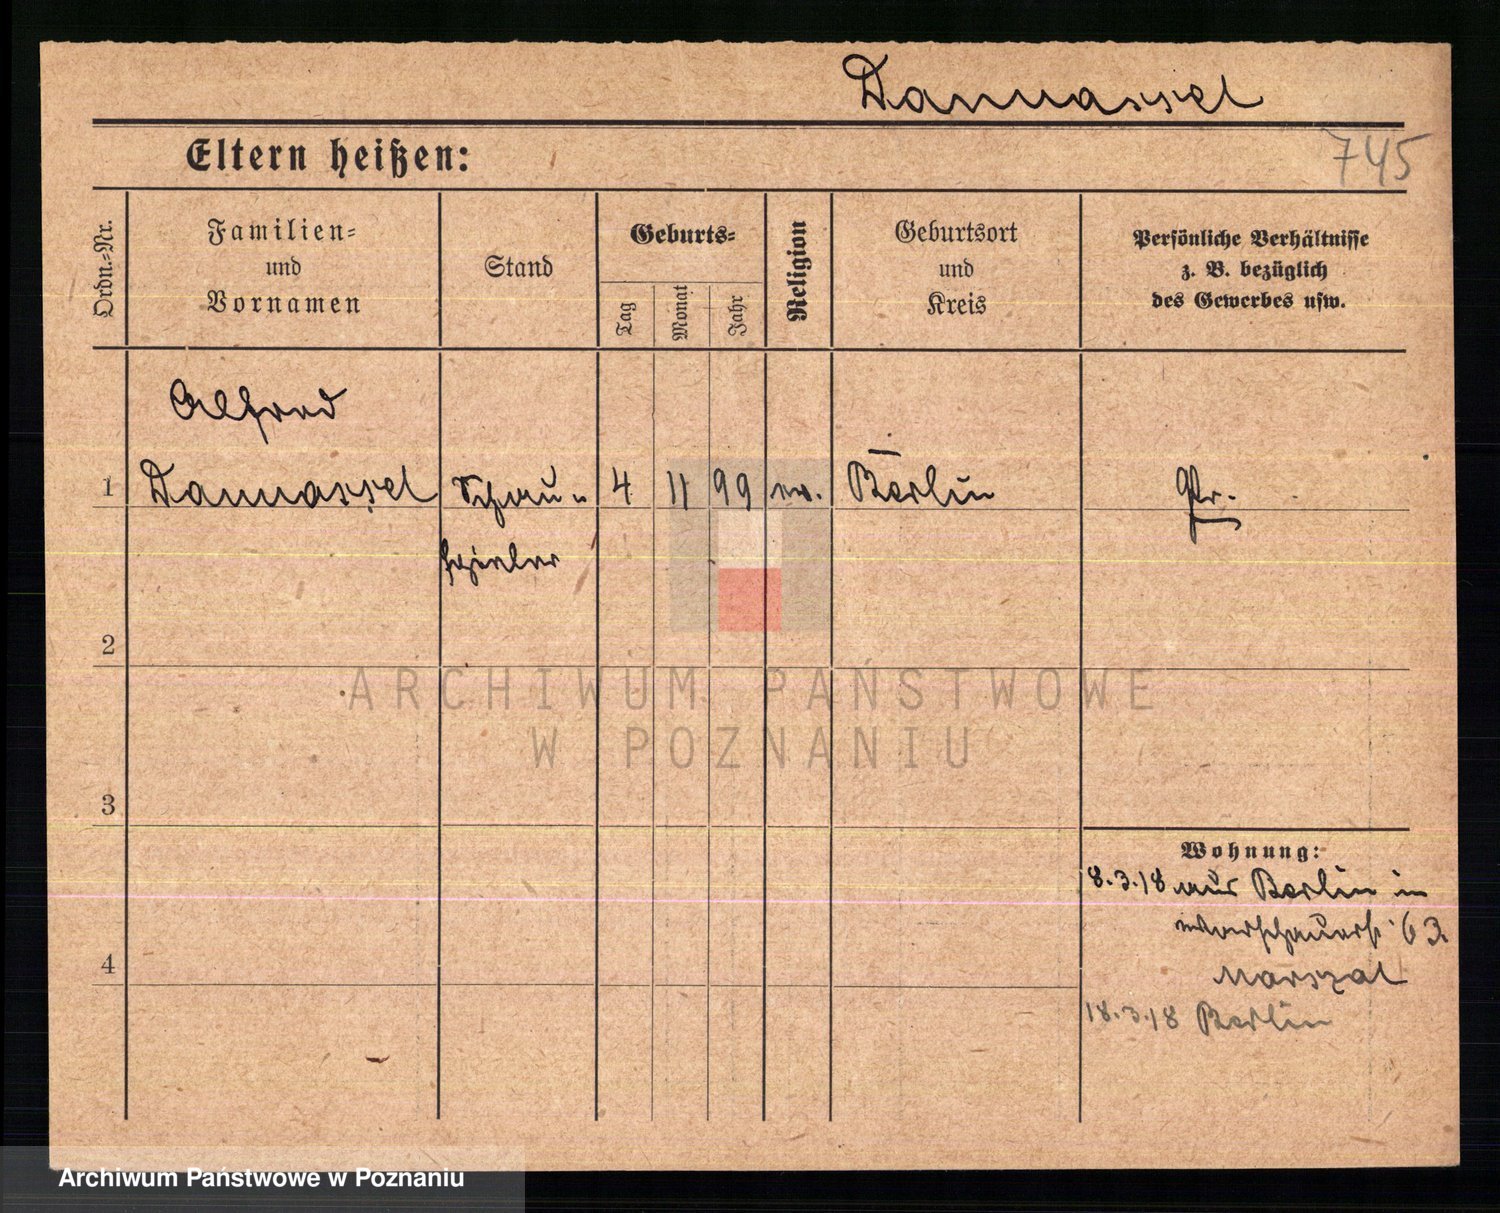 Dannassel
Eltern heißen:
745
Ordn.-Nr.
Familien-
und
Vornamen
Stand
Geburts-
Tag
Monat
Jahr
Religion
Geburtsort
und
Kreis
Persönliche Verhältnisse
z. B. bezüglich
des Gewerbes usw.
Alfred
1 Dannassel Schau- 4 11 99 ev. Berlin Pr.
spieler
2
ARCHIWUM PAŃSTWOWE
W POZNANIU
3
Wohnung:
8.3.18 aus Berlin in
63
4
Marszal
18.3.18 Berlin
Archiwum Państwowe w Poznaniu